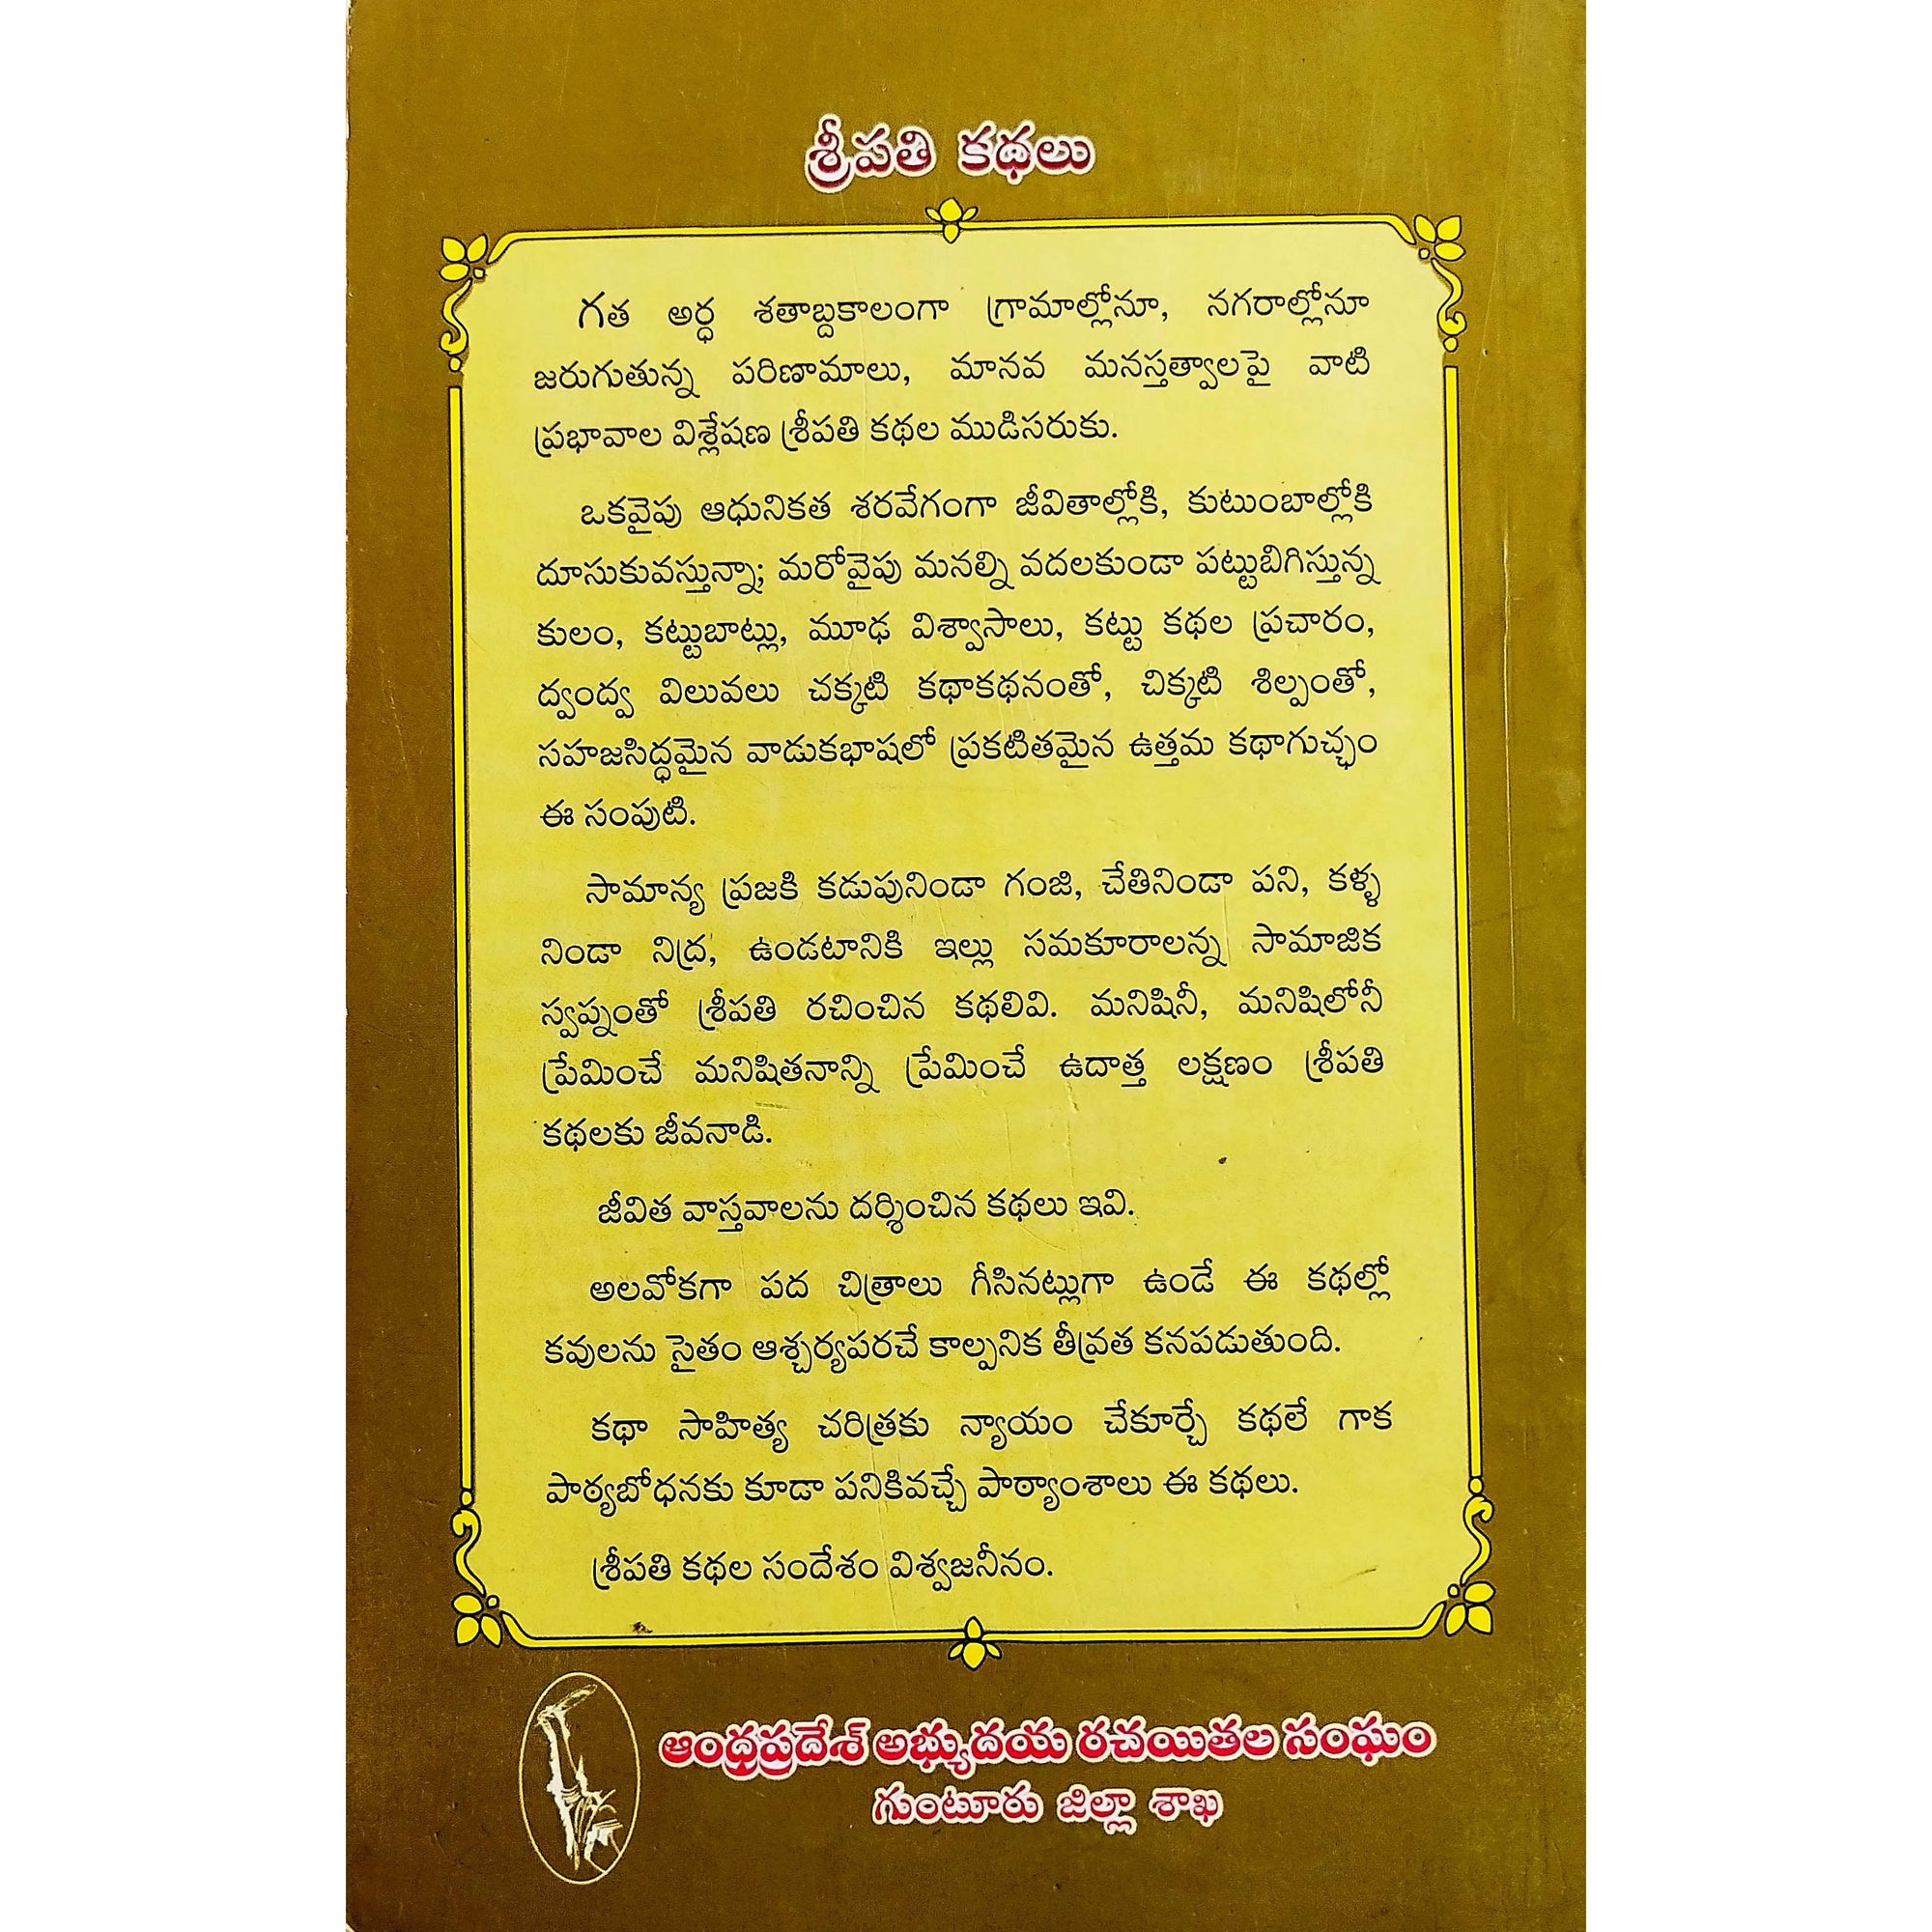 శ్రీపతి కథలు
గత అర్ధ శతాబ్దకాలంగా గ్రామాల్లోనూ, నగరాల్లోనూ
జరుగుతున్న పరిణామాలు, మానవ మనస్తత్వాలపై వాటి
ప్రభావాల విశ్లేషణ శ్రీపతి కథల ముడిసరుకు.
ఒకవైపు ఆధునికత శరవేగంగా జీవితాల్లోకి, కుటుంబాల్లోకి
దూసుకువస్తున్నా; మరోవైపు మనల్ని వదలకుండా పట్టుబిగిస్తున్న
కులం, కట్టుబాట్లు, మూఢ విశ్వాసాలు, కట్టు కథల ప్రచారం,
ద్వంద్వ విలువలు చక్కటి కథాకథనంతో, చిక్కటి శిల్పంతో,
సహజసిద్ధమైన వాడుకభాషలో ప్రకటితమైన ఉత్తమ కథాగుచ్ఛం
ఈ సంపుటి.
సామాన్య ప్రజకి కడుపునిండా గంజి, చేతినిండా పని, కళ్ళ
నిండా నిద్ర, ఉండటానికి ఇల్లు సమకూరాలన్న సామాజిక
స్వప్నంతో శ్రీపతి రచించిన కథలివి. మనిషినీ, మనిషిలోనీ
ప్రేమించే మనిషితనాన్ని ప్రేమించే ఉదాత్త లక్షణం శ్రీపతి
కథలకు జీవనాడి.
జీవిత వాస్తవాలను దర్శించిన కథలు ఇవి.
అలవోకగా పద చిత్రాలు గీసినట్లుగా ఉండే ఈ కథల్లో
కవులను సైతం ఆశ్చర్యపరచే కాల్పనిక తీవ్రత కనపడుతుంది.
కథా సాహిత్య చరిత్రకు న్యాయం చేకూర్చే కథలే గాక
పాఠ్యబోధనకు కూడా పనికివచ్చే పాఠ్యాంశాలు ఈ కథలు.
శ్రీపతి కథల సందేశం విశ్వజనీనం.
ఆంధ్రప్రదేశ్ అభ్యుదయ రచయితల సంఘం
గుంటూరు జిల్లా శాఖ